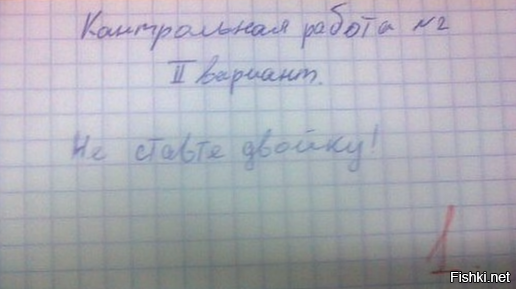 Контрольная работа №2
II вариант.
Не ставте двойку!
1
Fishki.net